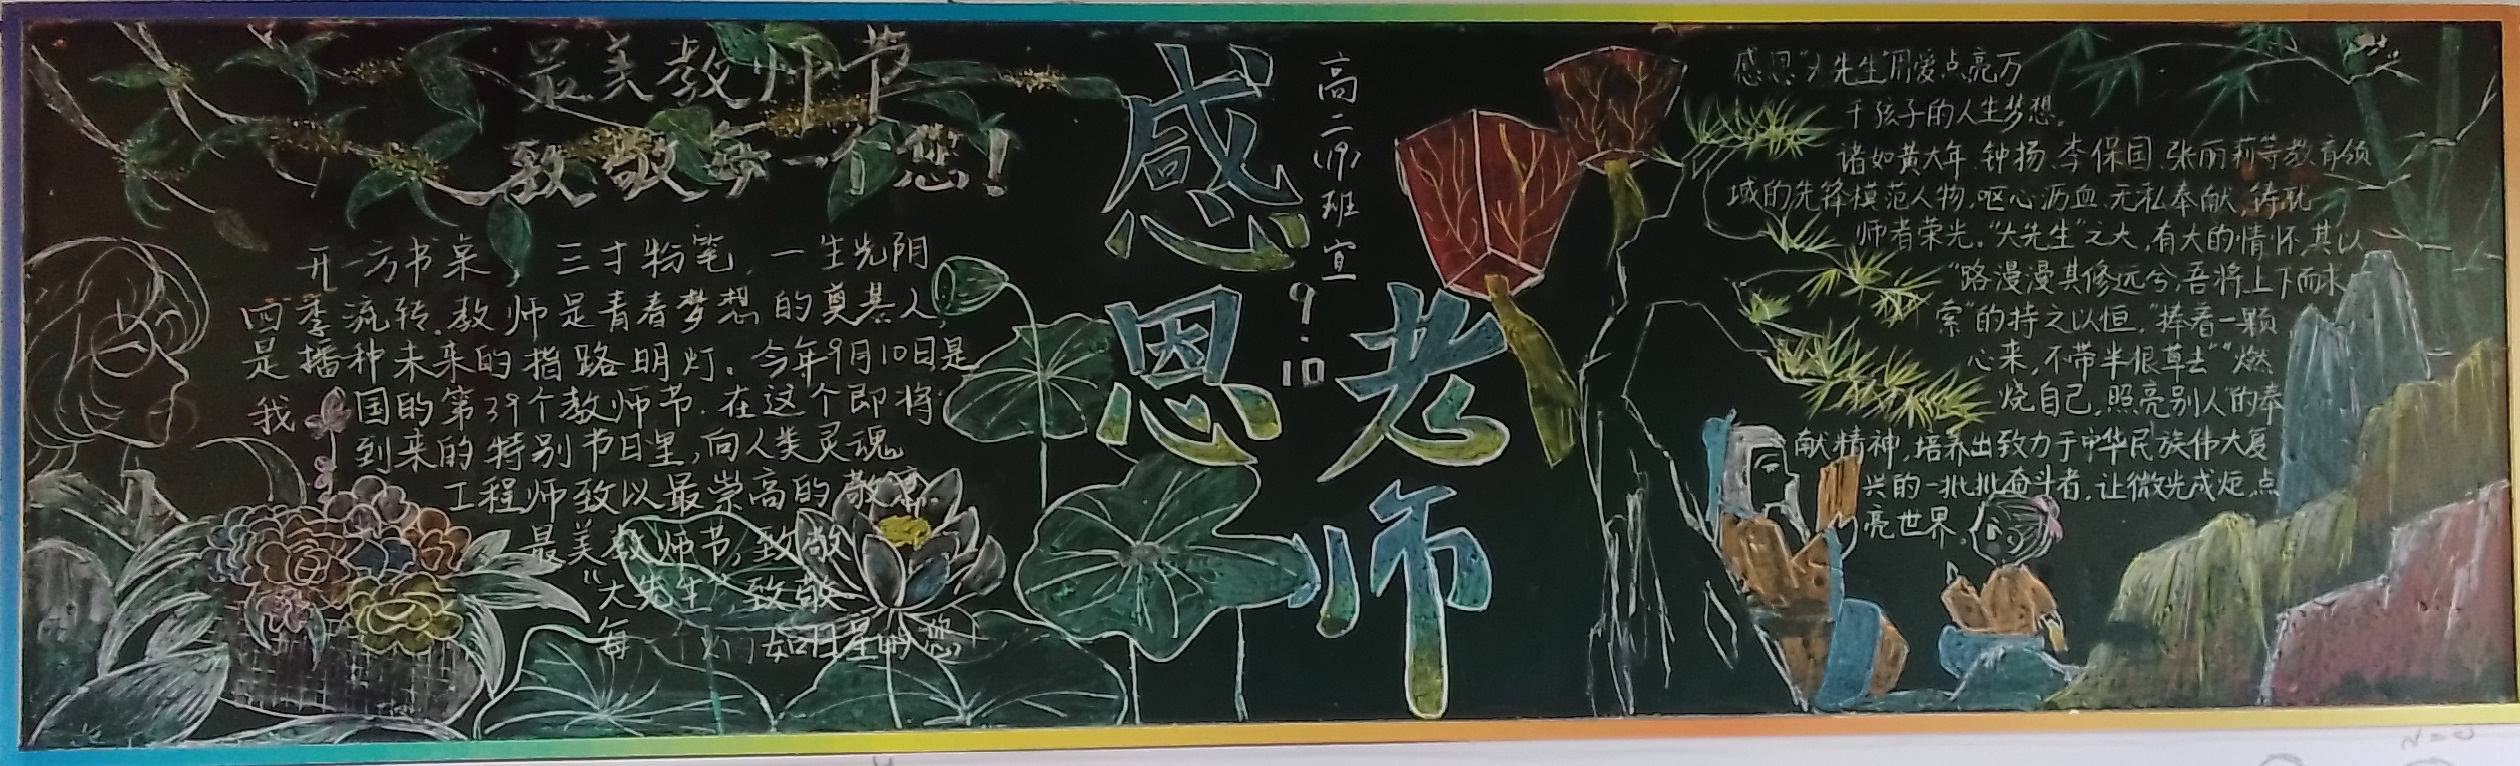 最美教师节
致敬每一个您！
开一方书桌，三寸粉笔，一生光阴
四季流转。教师是青春梦想的奠基人，
是播种未来的指路明灯。今年9月10日是
我国的第39个教师节。在这个即将
到来的特别节日里，向人类灵魂
工程师致以最崇高的敬意
最美教师节，致敬
“大先生”，致敬
每一个们如日星的您
感
恩
老
师
高二(19)班宣
9.10
感恩“大先生”用爱点亮万
千孩子的人生梦想。
诸如黄大年、钟扬、李保国、张丽莉等教育领
域的先锋模范人物，呕心沥血、无私奉献、铸就
师者荣光。“大先生”之大，有大的情怀，其以
“路漫漫其修远兮，吾将上下而求
索”的持之以恒，“捧着一颗
心来，不带半根草去”“燃
烧自己，照亮别人”的奉
献精神，培养出致力于中华民族伟大复
兴的一批批奋斗者，让微光成炬，点
亮世界。